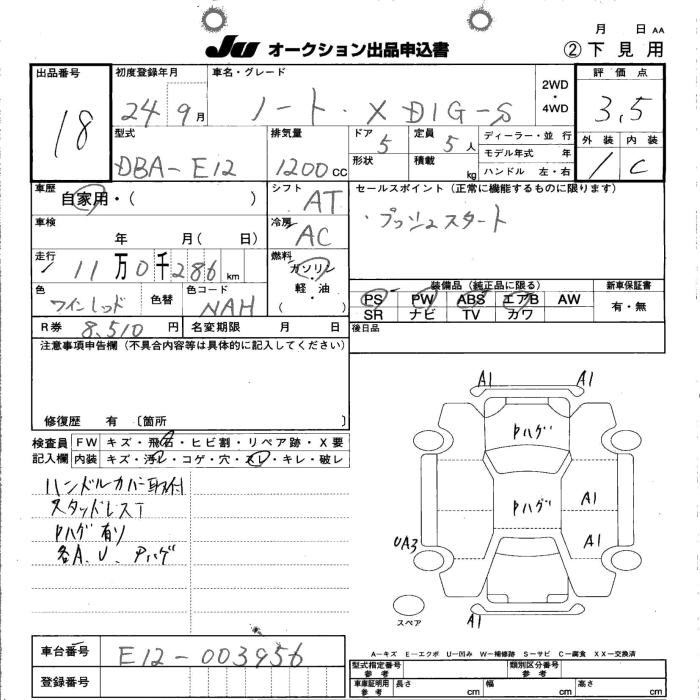 月 日 AA
JU オークション出品申込書 ②下見用
出品番号 18
初度登録年月 24年9月
車名・グレード ノート・X DIG-S
2WD・4WD
評価点 3.5
外装 1 内装 C
型式 DBA-E12
排気量 1200cc
ドア 5 形状
定員 5人 積載 kg
ディーラー・並行
モデル年式 年
ハンドル 左・右
車歴 自家用・( )
シフト AT
セールスポイント(正常に機能するものに限ります)
・プッシュスタート
車検 年 月( 日)
冷房 AC
走行 11万0千286km
燃料 ガソリン・軽油・( )
色 ワインレッド 色替
色コード NAH
装備品(純正品に限る) 新車保証書
PS PW ABS エアB AW 有・無
SR ナビ TV カワ
R券 8,510円 名変期限 月 日
後日品
注意事項申告欄(不具合内容等は具体的に記入してください)
修復歴 有 〔箇所 〕
検査員記入欄
FW キズ・飛石・ヒビ割・リペア跡・X要
内装 キズ・汚レ・コゲ・穴・スレ・キレ・破レ
ハンドルカバー取付
スタッドレスT
Pハゲ有り
各A、U、Pハゲ
A1 A1
Pハゲ
Pハゲ A1
UA3 A1
A1
スペア
A-キズ E-エクボ U-凹み W-補修跡 S-サビ C-腐食 XX-交換済
車台番号 E12-003956
登録番号
型式指定番号 参考 類別区分番号 参考
車庫証明用 参考 長さ cm 幅 cm 高さ cm